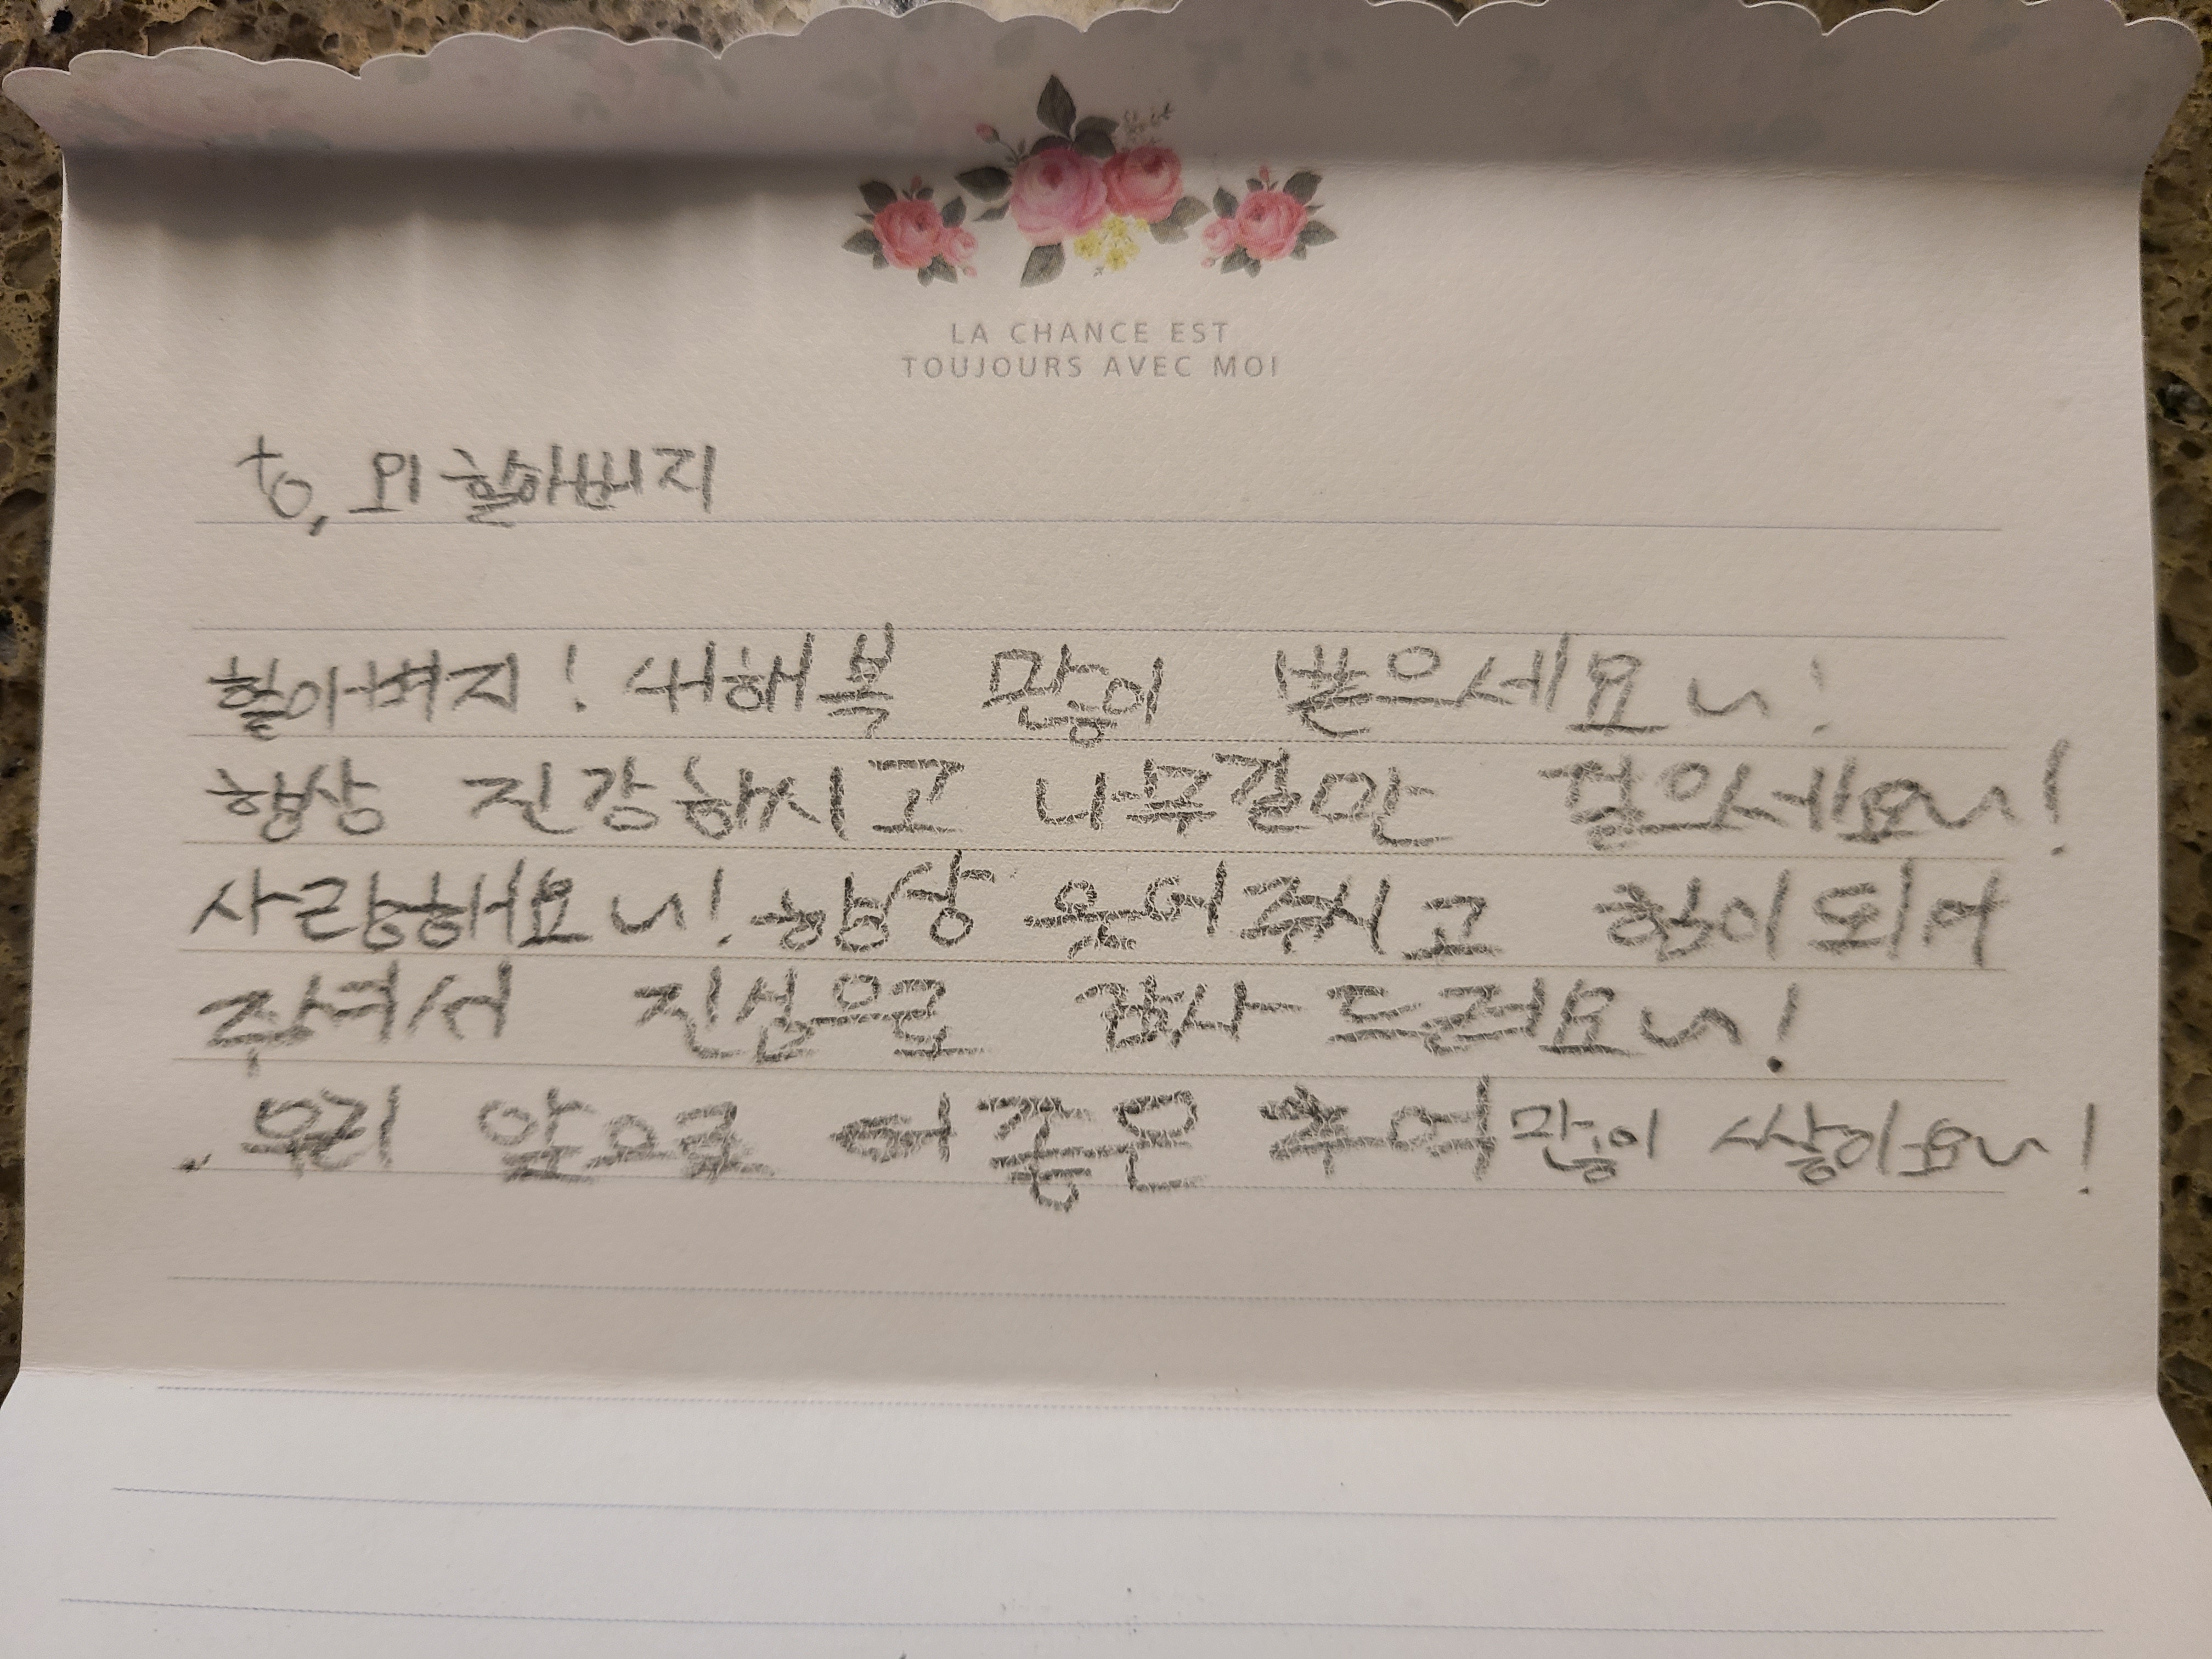 LA CHANCE EST
TOUJOURS AVEC MOI
to, 외할아버지
할아버지! 새해복 많이 받으세요~!
항상 건강하시고 나무길만 걸으세요~!
사랑해요~! 항상 웃어주시고 힘이되어
주셔서 진심으로 감사드려요~!
우리 앞으로 더 좋은 추억 많이 쌓아요~!